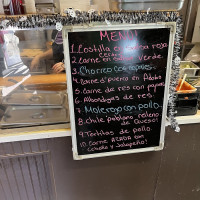 MENU
1. Costilla en salsa roja
2. Carne en salsa verde
3. Chorizo con papas
4. Carne d' puerco en Adobo
5. Carne de res con papas
6. Albondigas de res
7. Molerojo con pollo
8. Chile poblano relleno
de Queso!
9. Tortitas de pollo
10. Carne ASADA con
cebolla y Jalapeño!